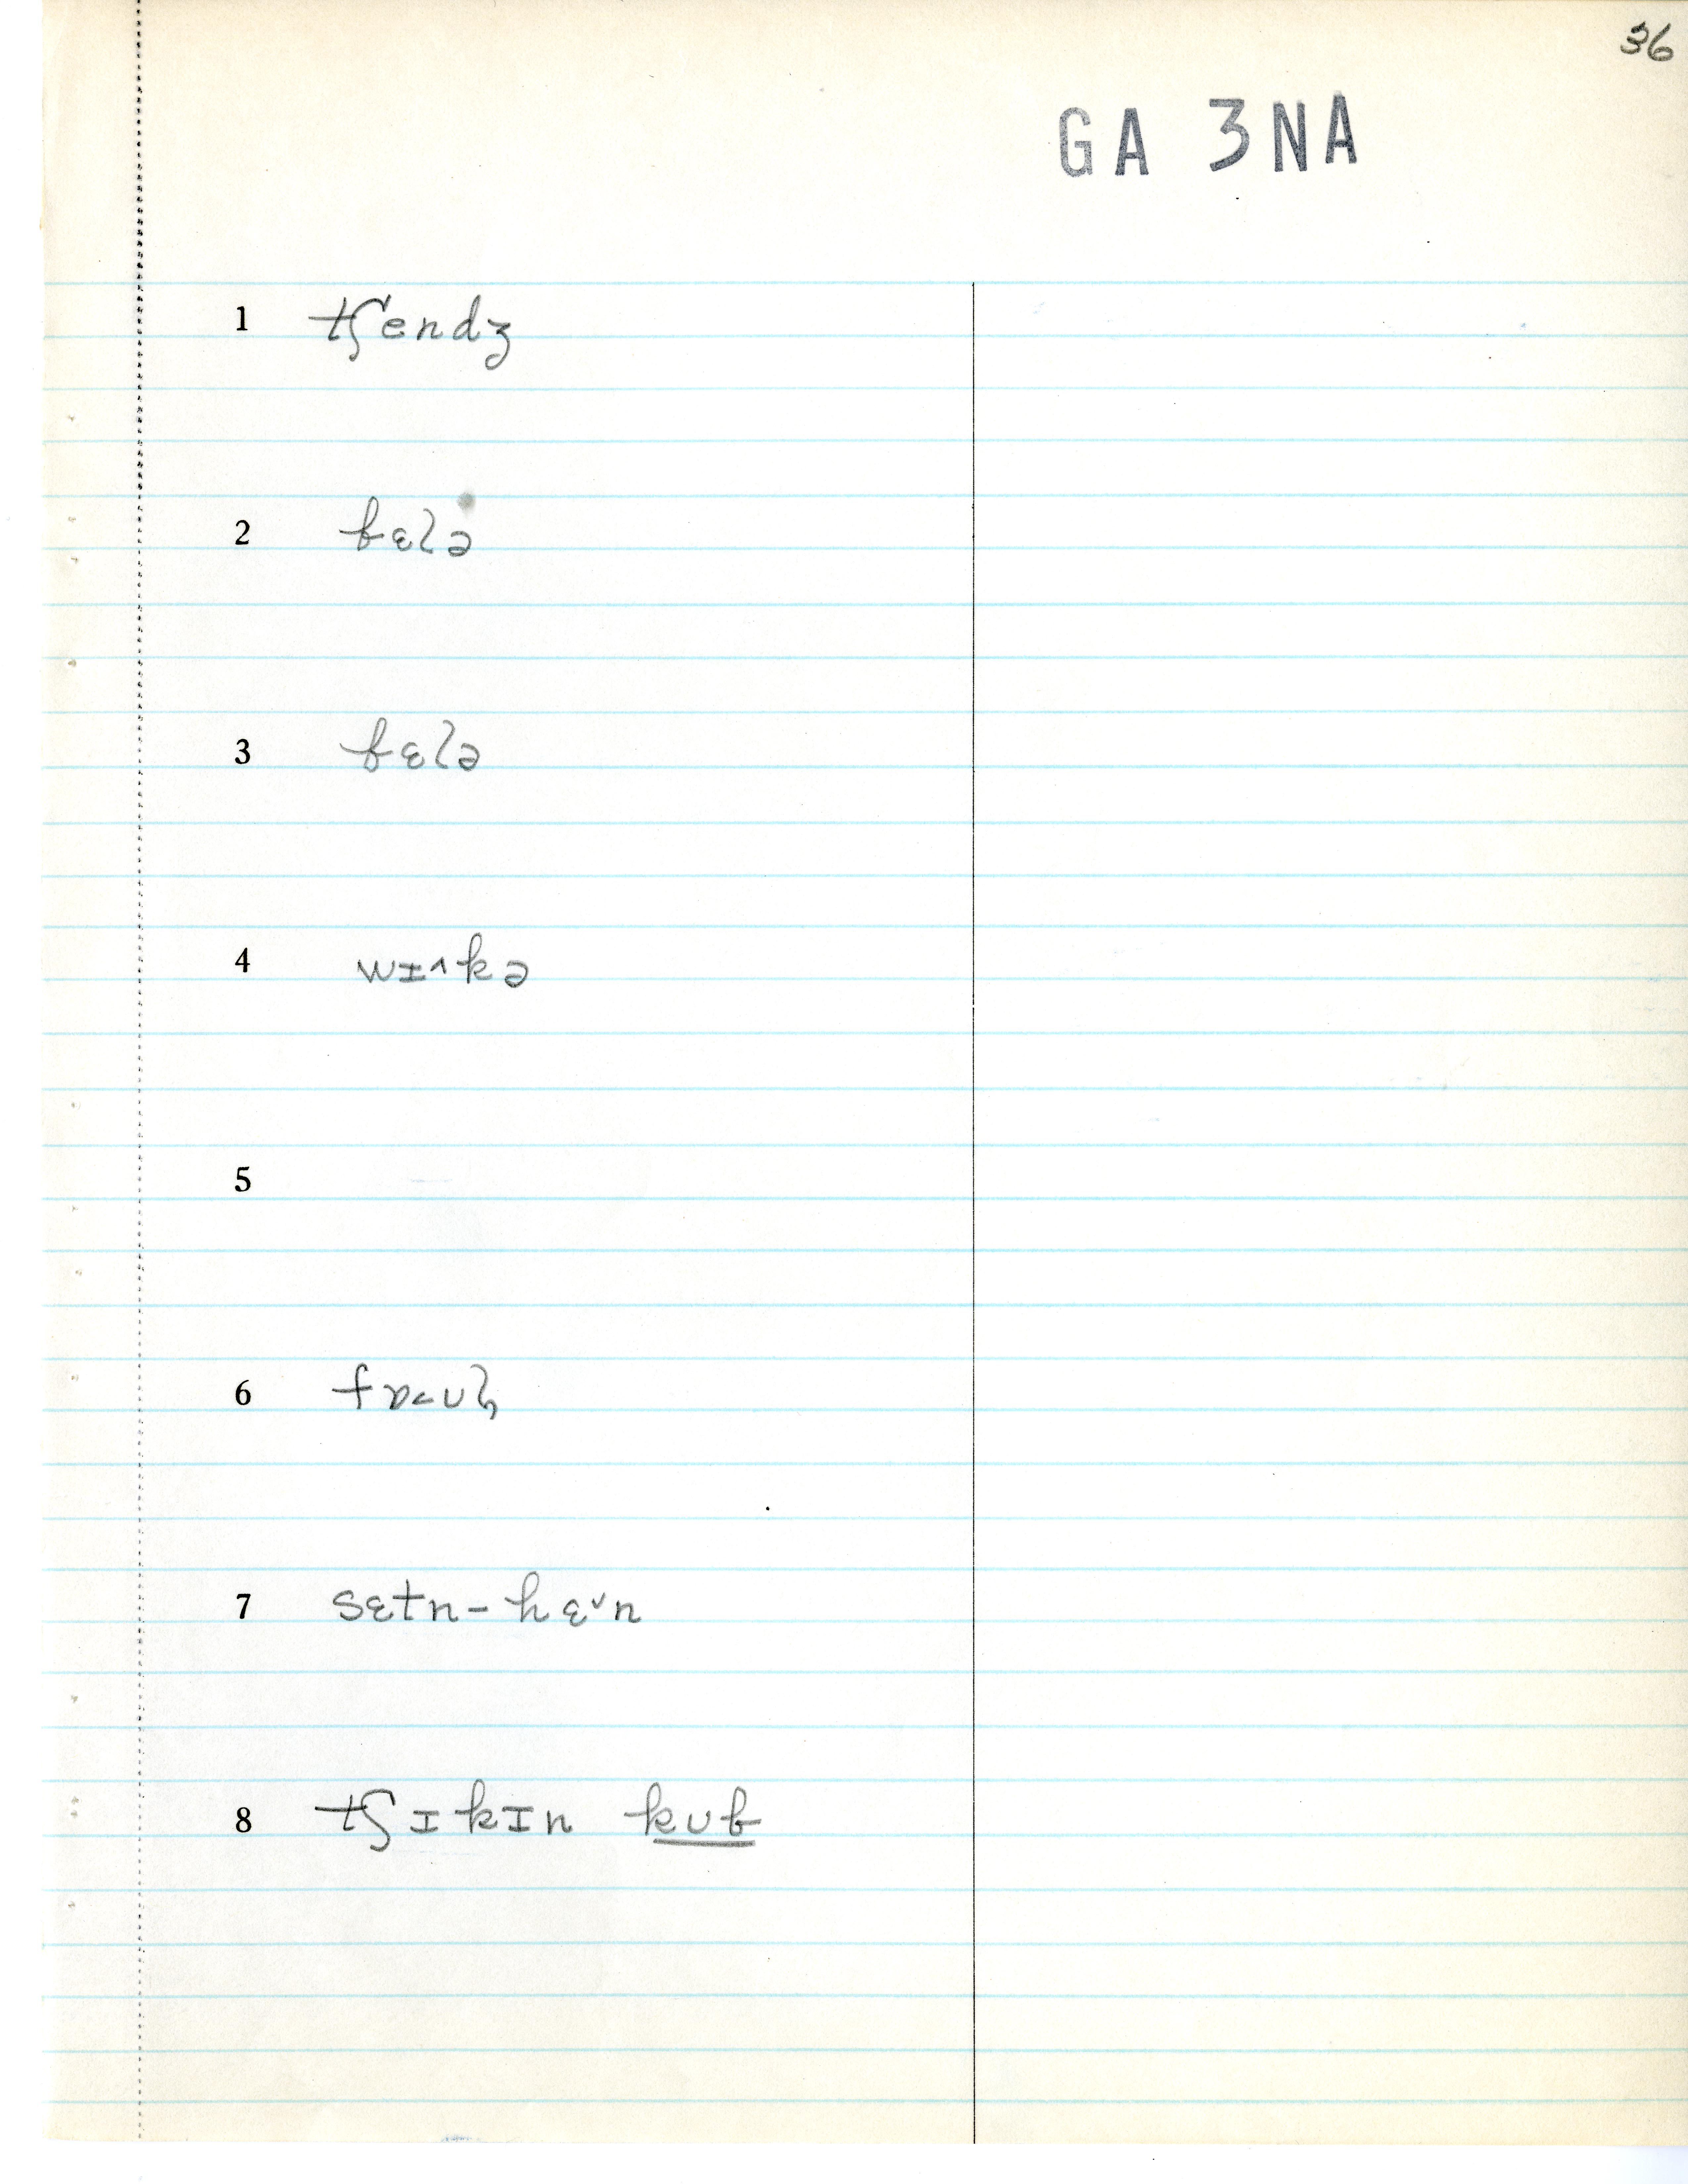 36
GA 3NA
1 tʃendʒ
2 bɛlə
3 bɛlə
4 wɪ˄kə
5
6 fɒ˂ʊl̩
7 sɛtn-hɛ˅n
8 tʃɪkɪn kub